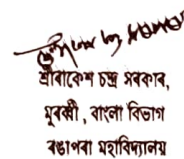 শ্ৰীৰাকেশ চন্দ্ৰ সৰকাৰ,
মুৰব্বী , বাংলা বিভাগ
ৰঙাপৰা মহাবিদ্যালয়